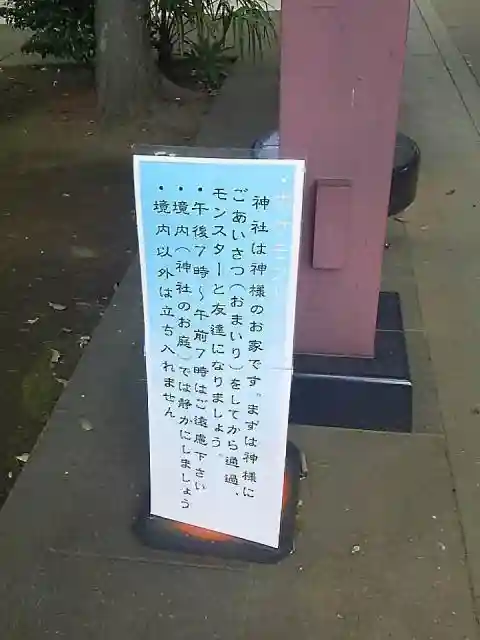 神社は神様のお家です。まずは神様に
ごあいさつ（おまいり）をしてから通過、
モンスターと友達になりましょう。
・午後7時～午前7時はご遠慮下さい
・境内（神社のお庭）では静かにしましょう
・境内以外は立ち入れません